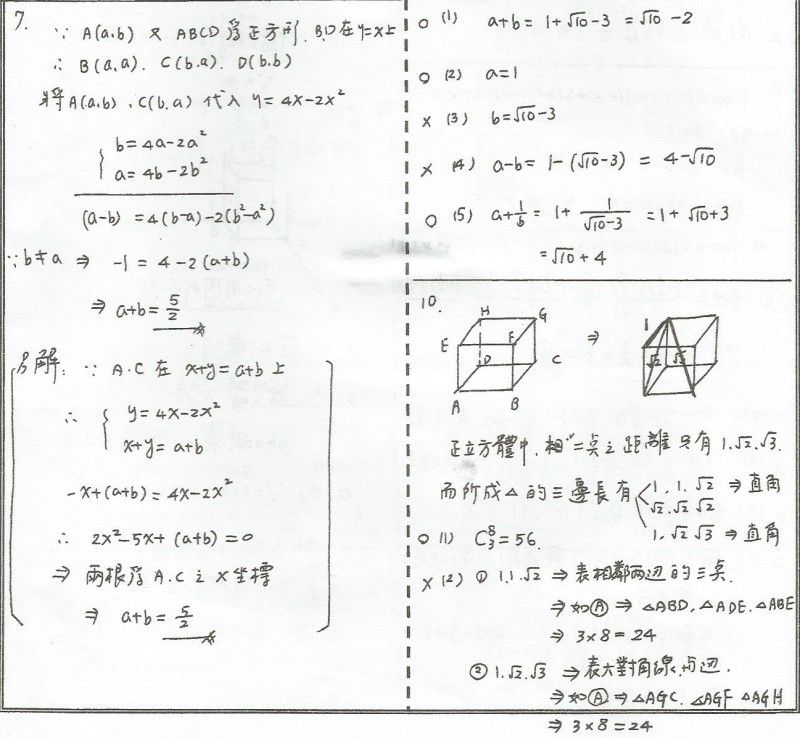 7.
∵ A(a.b) 又 ABCD 為正方形, BD在 y=x上
∴ B(a,a). C(b.a). D(b.b)
將 A(a.b) , C(b.a) 代入 y= 4x-2x²
b= 4a-2a²
a= 4b-2b²
(a-b) = 4(b-a)-2(b²-a²)
∵ b≠a ⇒ -1 = 4-2(a+b)
⇒ a+b= 5/2
另解: ∵ A.C 在 x+y=a+b 上
∴ y=4x-2x²
x+y=a+b
-x+(a+b) = 4x-2x²
∴ 2x²-5x+(a+b)=0
⇒ 兩根為 A.C 之 x坐標
⇒ a+b= 5/2
o (1) a+b= 1+√10-3 = √10-2
o (2) a=1
x (3) b=√10-3
x (4) a-b= 1-(√10-3) = 4-√10
o (5) a+1/b= 1+ 1/(√10-3) = 1+√10+3
=√10+4
10.
H G
E F ⇒ 1
D C √2 √3
A B
正立方體中, 相二點之距離只有 1.√2.√3.
而所成△的三邊長有 1. 1. √2 ⇒ 直角
√2.√2 √2
1. √2 √3 ⇒ 直角
o (1) C⁸₃=56.
x (2) ① 1.1.√2 ⇒ 表相鄰兩边的三点.
⇒ 如Ⓐ ⇒ △ABD, △ADE. △ABE
⇒ 3×8=24
② 1.√2.√3 ⇒ 表大對角線, 边.
⇒ 如Ⓐ ⇒ △AGC. △AGF △AGH
⇒ 3×8=24